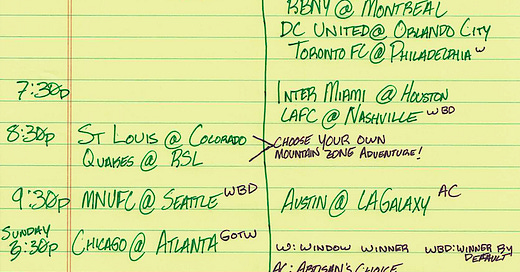 RBNY @ MONTREAL
DC UNITED @ ORLANDO CITY
TORONTO FC @ PHILADELPHIA W
7:30p
INTER MIAMI @ HOUSTON
LAFC @ NASHVILLE WBD
8:30p
ST LOUIS @ COLORADO
QUAKES @ RSL
CHOOSE YOUR OWN
MOUNTAIN ZONE ADVENTURE!
9:30p
MNUFC @ SEATTLE WBD
AUSTIN @ LA GALAXY AC
SUNDAY
3:30p
CHICAGO @ ATLANTA GOTW
W: WINDOW WINNER WBD: WINNER BY
DEFAULT
AC: ARTISAN'S CHOICE